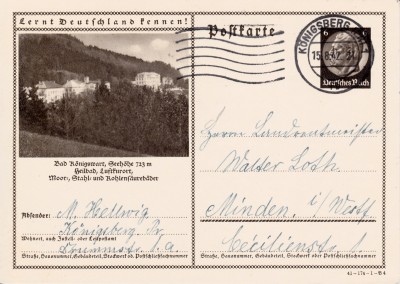 Lernt Deutschland kennen!
Postkarte
KÖNIGSBERG
6
Deutsches Reich
Bad Königswart, Seehöhe 723 m
Heilbad, Luftkurort,
Moor-, Stahl- und Kohlensäurebäder
Absender: M. Hellwig
Königsberg Pr.
Wohnort, auch Zustell- oder Leitpostamt
Straße, Hausnummer, Gebäudeteil, Stockwerk od. Postschließfachnummer
Herrn
Walter Loth
Minden i/Westf.
Cäcilienstr. 1
Straße, Hausnummer, Gebäudeteil, Stockwerk oder Postschließfachnummer